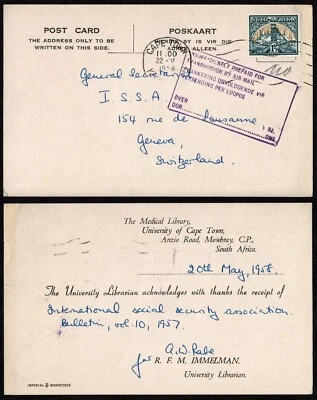 POST CARD
THE ADDRESS ONLY TO BE
WRITTEN ON THIS SIDE.
POSKAART
ADRES
ALLEEN.
CAPE
11.00
22-V
SOUTH AFRICA
INSUFFICIENTLY PREPAID FOR
TRANSMISSION BY AIR MAIL
FRANKERING ONVOLDOENDE VIR
VERSENDING PER LUGPOS
OVER
DOR
General Secretariat
I.S.S.A.
154 rue de Lausanne
Geneva,
Switzerland.
The Medical Library,
University of Cape Town,
Anzio Road, Mowbray, C.P.,
South Africa.
20th May, 1958.
The University Librarian acknowledges with thanks the receipt of
International social security association.
Bulletin, vol. 10, 1957.
A.W. Rabe
for R. F. M. IMMELMAN,
University Librarian.
IMPERIAL WOODSTOCK